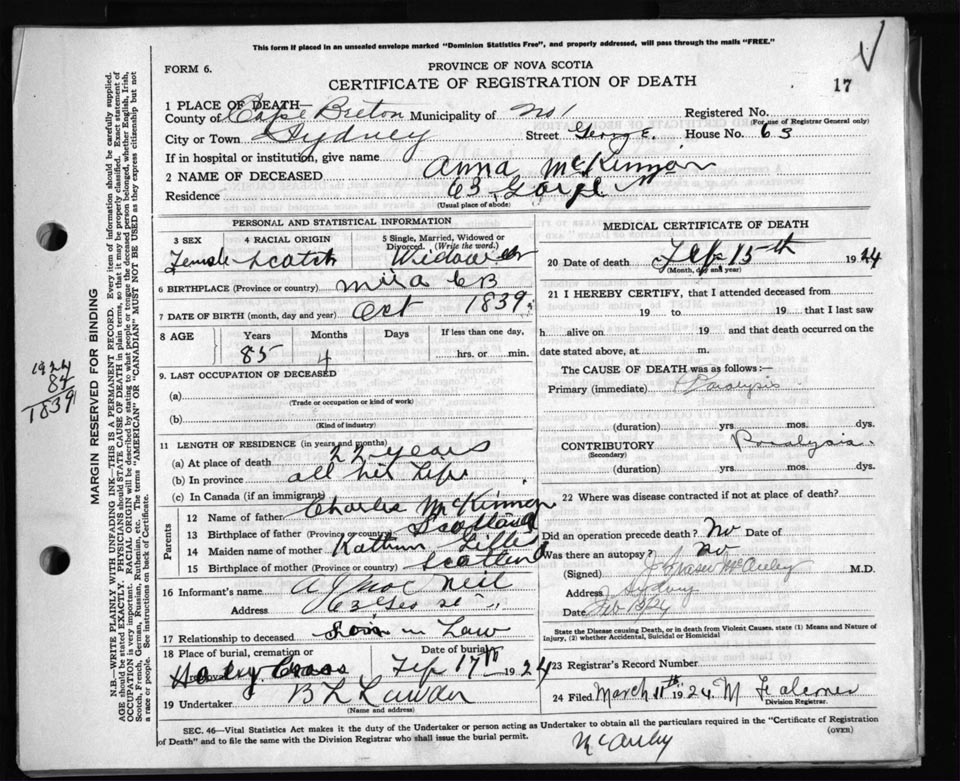 This form if placed in an unsealed envelope marked "Dominion Statistics Free", and properly addressed, will pass through the mails "FREE."
FORM 6.
PROVINCE OF NOVA SCOTIA
CERTIFICATE OF REGISTRATION OF DEATH
17
1 PLACE OF DEATH—
County of Cape Breton Municipality of No 1 Registered No.
(For use of Registrar General only)
City or Town Sydney Street George House No. 63
If in hospital or institution, give name
2 NAME OF DECEASED Anna McKinnon
Residence 63 George St
(Usual place of abode)
PERSONAL AND STATISTICAL INFORMATION
3 SEX 4 RACIAL ORIGIN 5 Single, Married, Widowed or Divorced. (Write the word.)
Female Scotch Widow
6 BIRTHPLACE (Province or country) Mira CB
7 DATE OF BIRTH (month, day and year) Oct 1839
8 AGE Years Months Days If less than one day,
85 4 hrs. or min.
9. LAST OCCUPATION OF DECEASED
(a)
(Trade or occupation or kind of work)
(b)
(Kind of industry)
11 LENGTH OF RESIDENCE (in years and months)
(a) At place of death 22 years
(b) In province all her Life
(c) In Canada (if an immigrant)
Parents
12 Name of father Charles McKinnon
13 Birthplace of father (Province or country) Scotland
14 Maiden name of mother
15 Birthplace of mother (Province or country) Scotland
16 Informant's name A J Mac Neil
Address 63 Geo st "
17 Relationship to deceased Son in Law
18 Place of burial, cremation or removal Date of burial
Holey Cross Feb 17th 1924
19 Undertaker B L Lawder
(Name and address)
MEDICAL CERTIFICATE OF DEATH
20 Date of death Feb 15th 1924
(Month, day and year)
21 I HEREBY CERTIFY, that I attended deceased from
19 to 19 that I last saw
h alive on 19 and that death occurred on the
date stated above, at m.
The CAUSE OF DEATH was as follows:—
Primary (immediate) Paralysis
(duration) yrs. mos. dys.
CONTRIBUTORY Paralysis
(Secondary)
(duration) yrs. mos. dys.
22 Where was disease contracted if not at place of death?
Did an operation precede death? No Date of
Was there an autopsy? No
(Signed) J Fraser McAuley M.D.
Address Sydney
Date Feb
State the Disease causing Death, or in death from Violent Causes, state (1) Means and Nature of Injury, (2) whether Accidental, Suicidal or Homicidal
23 Registrar's Record Number
24 Filed March 11th 1924 M Falconer
Division Registrar.
SEC. 46—Vital Statistics Act makes it the duty of the Undertaker or person acting as Undertaker to obtain all the particulars required in the "Certificate of Registration of Death" and to file the same with the Division Registrar who shall issue the burial permit.
(OVER)
McAuley
MARGIN RESERVED FOR BINDING
N.B.—WRITE PLAINLY WITH UNFADING INK—THIS IS A PERMANENT RECORD. Every item of information should be carefully supplied.
AGE should be stated EXACTLY. PHYSICIANS should STATE CAUSE OF DEATH in plain terms, so that it may be properly classified. Exact statement of
OCCUPATION is very important. RACIAL ORIGIN will be described by stating to what people or tongue the deceased person belonged, whether English, Irish,
Scotch, French, German, Russian, Ruthenian, etc. The terms "AMERICAN" or "CANADIAN" MUST NOT BE USED as they express citizenship but not
a race or people. See instructions on back of Certificate.
1924
84
1839